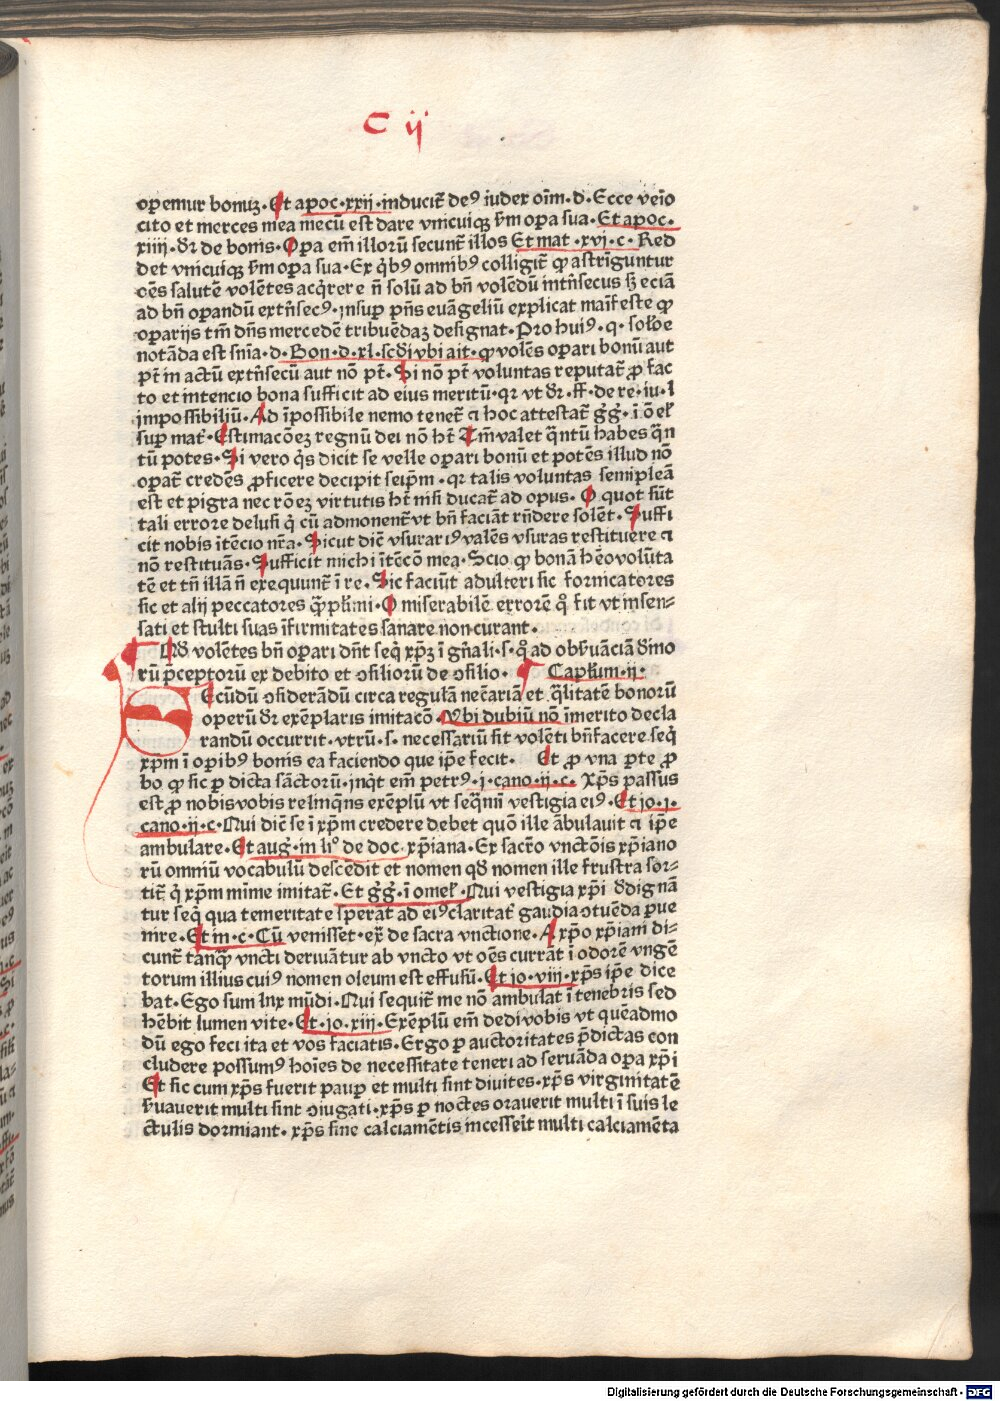 C ij
operemur bonuꝫ. Et apoc. xxij. inducit̄ deꝰ iudex oīm. d. Ecce veīo
cito et merces mea mecū est dare vnicuiqꝫ ẜm oꝑa sua. Et apoc.
xiiij. dr̄ de bonis. Oꝑa em̄ illorū secunt̄ illos Et mat. xvj. c. Red
det vnicuiqꝫ ẜm oꝑa sua. Ex q̇bꝰ omnibꝰ colligit̄ ꝙ astrīguntur
oēs salutē volētes acq̇rere n̄ solū ad bn̄ volēdū intn̄secus sꝫ eciā
ad bn̄ oꝑandū extn̄secꝰ. insuꝑ pn̄s euāgeliū explicat maīfeste ꝙ
oꝑarijs tm̄ dn̄s mercedē tribuēdaꝫ designat. Pro huiꝰ. q. soloē
notāda est snīa. d. Bon. d. xl. scd̄i vbi ait. ꝙ volēs oꝑari bonū aut
pt̄ in actū extn̄secū aut nō pt̄. Si nō pt̄ voluntas reputat̄ ꝓ fac
to et intencio bona sufficit ad eius meritū. qꝛ vt dr̄. ff. de re. iu. l
impossibiliū. Ad īpossibile nemo tenet̄ ⁊ hoc attestat̄ gḡ. ī oēl
suꝑ mat̄. Estimacōeꝫ regnū dei nō ht̄ Tm̄ valet q̄ntū habes q̄n
tū potes. Si vero q̇s dicit se velle oꝑari bonū et potēs illud nō
oꝑat̄ credēs ꝓficere decipit seip̄m. qꝛ talis voluntas semipleā
est et pigra nec rōeꝫ virtutis ht̄ nisi ducat̄ ad opus. O quot sūt
tali errore delusi q̇ cū admonent̄ vt bn̄ faciāt rn̄dere solēt. Suffi
cit nobis ītēcio nr̄a. Sicut dic̄ vsurariꝰ valēs vsuras restituere ⁊
nō restituās. Sufficit michi ītēcō mea. Scio ꝙ bonā hēo volūta
tē et tn̄ illā n̄ exequunt̄ ī re. Sic faciūt adulteri sic fornicatores
sic et alij peccatores q̄ꝑlꝛimi. O miserabilē errorē qͦ fit vt insen-
sati et stulti suas īfirmitates sanare non curant.
Ad volētes bn̄ oꝑari dn̄t seq̇ xp̄ꝫ ī gn̄ali. s. qͦ ad obẜuāciā dīno
rū p̄ceptorū ex debito et ꝯsiliorū de ꝯsilio. Capl̄m. ij.
Secūdū ꝯsiderādū circa regulā nec̄ariā et q̄litatē bonorū
operū dr̄ exēplaris imitacō. Vbi dubiū nō īmerito decla
randū occurrit. vtrū. s. necessariū sit volēti bn̄facere seq̇
xp̄m ī oꝑibꝰ bonis ea faciendo que ip̄e fecit. Et ꝓ vna ꝑte ꝓ
bo ꝙ sic ꝑ dicta sāctorū. inq̇t em̄ petrꝰ. j. cano. ij. c. Xp̄s passus
est ꝓ nobis vobis relinq̄ns exēplū vt seq̄mī vestigia eiꝰ. Et io. j.
cano. ij. c. Qui dic̄ se ī xp̄m credere debet quō ille ābulauit ⁊ ip̄e
ambulare. Et auḡ. in liͦ de doc. xp̄iana. Ex sacrō vnctōis xp̄iano
rū omniū vocabulū descēdit et nomen qd̄ nomen ille frustra sor-
tit̄ q̇ xp̄m minime imitat̄. Et gḡ. ī omel̄. Qui vestigia xp̄i dedignā
tur seq̇ qua temeritate sperāt ad eiꝰ claritat̄ gaudia ꝯtuēda ꝑue
nire. Et in. c. Cū venisset. exͣ de sacra vnctione. A xp̄o xp̄iani di-
cunt̄ tanq̄ꝫ vncti deriuātur ab vncto vt oēs currāt ī odorē vngē
torum illius cuiꝰ nomen oleum est effusū. Et io. viij. xp̄s ip̄e dice
bat. Ego sum lux mūdi. Qui sequit̄ me nō ambulat ī tenebris sed
hēbit lumen vite. Et. io. xiij. Exēplū em̄ dedi vobis vt quēadmo
dū ego feci ita et vos faciatis. Ergo ꝑ auctoritates p̄dictas con
cludere possumꝰ hoīes de necessitate teneri ad seruāda oꝑa xp̄i
Et sic cum xp̄s fuerit pauꝑ et multi sint diuites. xp̄s virginitatē
ẜuauerit multi sint ꝯiugati. xp̄s ꝑ noctes orauerit multi ī suis le
ctulis dormiant. xp̄s sine calciamētis incesserit multi calciamēta
Digitalisierung gefördert durch die Deutsche Forschungsgemeinschaft - DFG